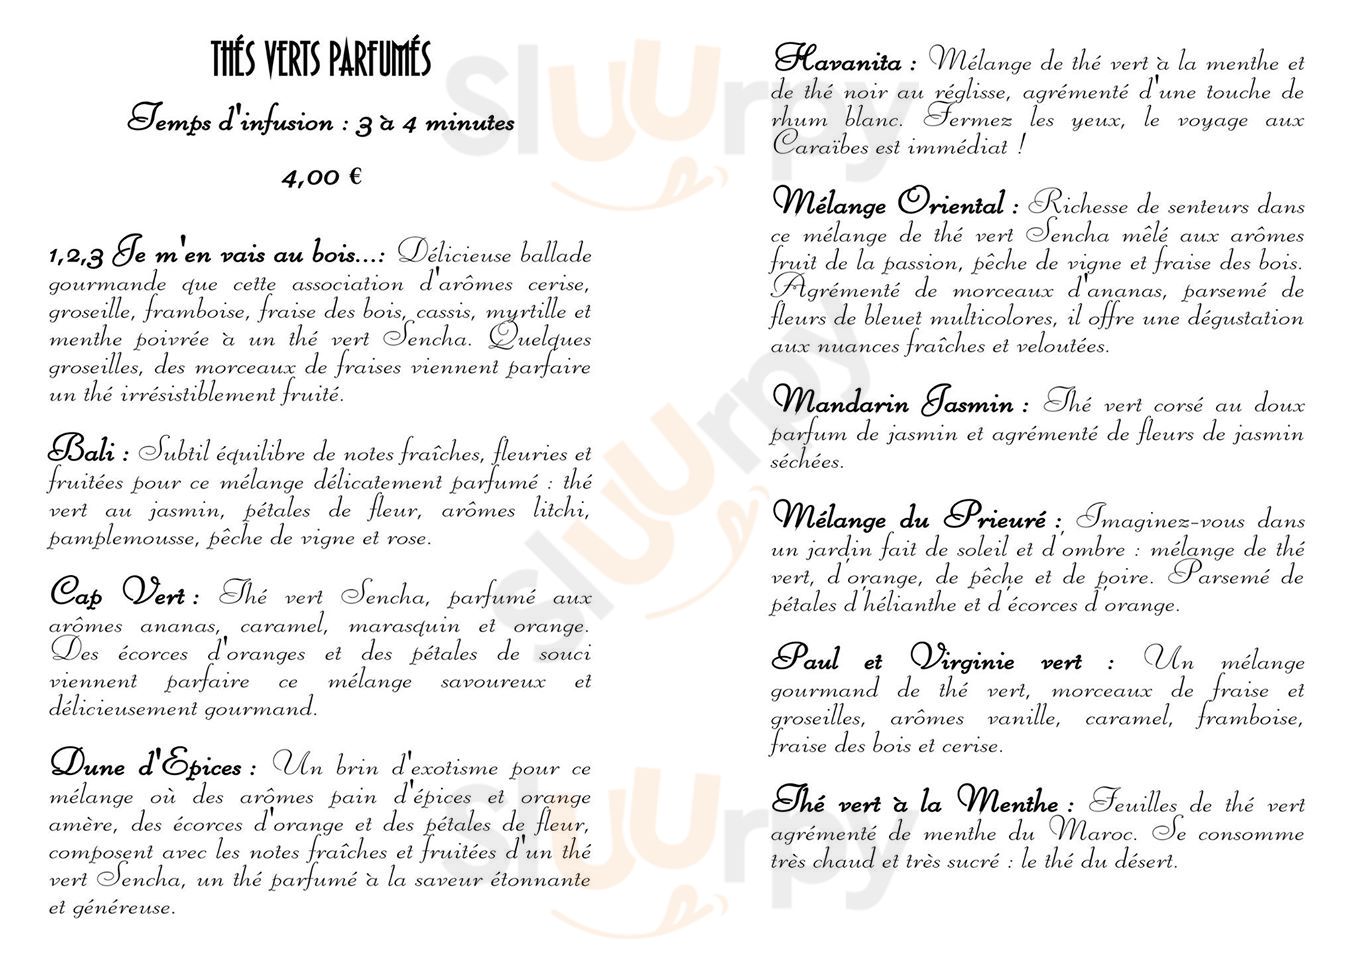 THÉS VERTS PARFUMÉS
Temps d'infusion : 3 à 4 minutes
4,00 €
1,2,3 Je m'en vais au bois...: Délicieuse ballade
gourmande que cette association d'arômes cerise,
groseille, framboise, fraise des bois, cassis, myrtille et
menthe poivrée à un thé vert Sencha. Quelques
groseilles, des morceaux de fraises viennent parfaire
un thé irrésistiblement fruité.
Bali : Subtil équilibre de notes fraîches, fleuries et
fruitées pour ce mélange délicatement parfumé : thé
vert au jasmin, pétales de fleur, arômes litchi,
pamplemousse, pêche de vigne et rose.
Cap Vert : Thé vert Sencha, parfumé aux
arômes ananas, caramel, marasquin et orange.
Des écorces d'oranges et des pétales de souci
viennent parfaire ce mélange savoureux et
délicieusement gourmand.
Dune d'Epices : Un brin d'exotisme pour ce
mélange où des arômes pain d'épices et orange
amère, des écorces d'orange et des pétales de fleur,
composent avec les notes fraîches et fruitées d'un thé
vert Sencha, un thé parfumé à la saveur étonnante
et généreuse.
Havanita : Mélange de thé vert à la menthe et
de thé noir au réglisse, agrémenté d'une touche de
rhum blanc. Fermez les yeux, le voyage aux
Caraïbes est immédiat !
Mélange Oriental : Richesse de senteurs dans
ce mélange de thé vert Sencha mêlé aux arômes
fruit de la passion, pêche de vigne et fraise des bois.
Agrémenté de morceaux d'ananas, parsemé de
fleurs de bleuet multicolores, il offre une dégustation
aux nuances fraîches et veloutées.
Mandarin Jasmin : Thé vert corsé au doux
parfum de jasmin et agrémenté de fleurs de jasmin
séchées.
Mélange du Prieuré : Imaginez-vous dans
un jardin fait de soleil et d'ombre : mélange de thé
vert, d'orange, de pêche et de poire. Parsemé de
pétales d'hélianthe et d'écorces d'orange.
Paul et Virginie vert : Un mélange
gourmand de thé vert, morceaux de fraise et
groseilles, arômes vanille, caramel, framboise,
fraise des bois et cerise.
Thé vert à la Menthe : Feuilles de thé vert
agrémenté de menthe du Maroc. Se consomme
très chaud et très sucré : le thé du désert.
Sluurpy
Sluurpy
Sluurpy